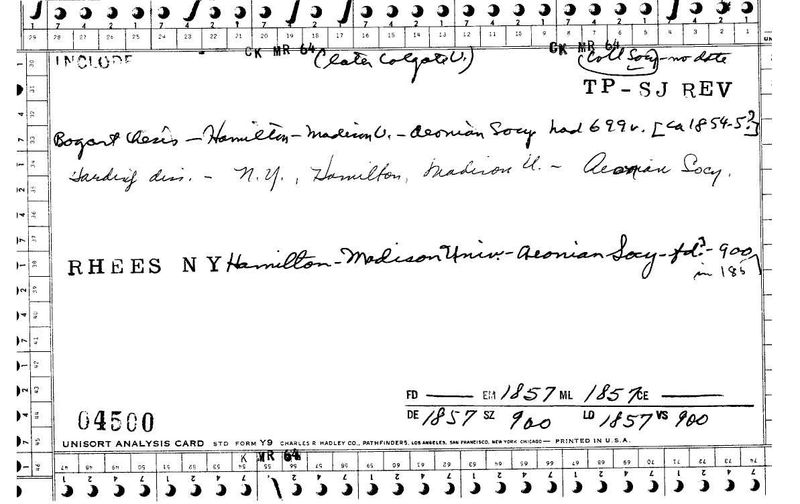 29 28 27 26 25 24 23 22 21 20 19 18 17 16 15 14 13 12 11 10 9 8 7 6 5 4 3 2 1
CK MR 64 CK MR 64
INCLUDE (later Colgate U.) (Coll Socy) - no date
TP-SJ REV
Bogart thesis - Hamilton - Madison U. - Aeonian Socy had 699 v. [ca 1854-5?]
Harding diss. - N.Y., Hamilton, Madison U. - Aeonian Socy.
RHEES NY Hamilton - Madison Univ. - Aeonian Socy - fd? - 900
in 185
FD — EM 1857 ML 1857 CE —
DE 1857 SZ 900 LD 1857 VS 900
04500
UNISORT ANALYSIS CARD STD FORM Y9 CHARLES R HADLEY CO., PATHFINDERS, LOS ANGELES, SAN FRANCISCO, NEW YORK CHICAGO — PRINTED IN U.S.A.
K MR 64